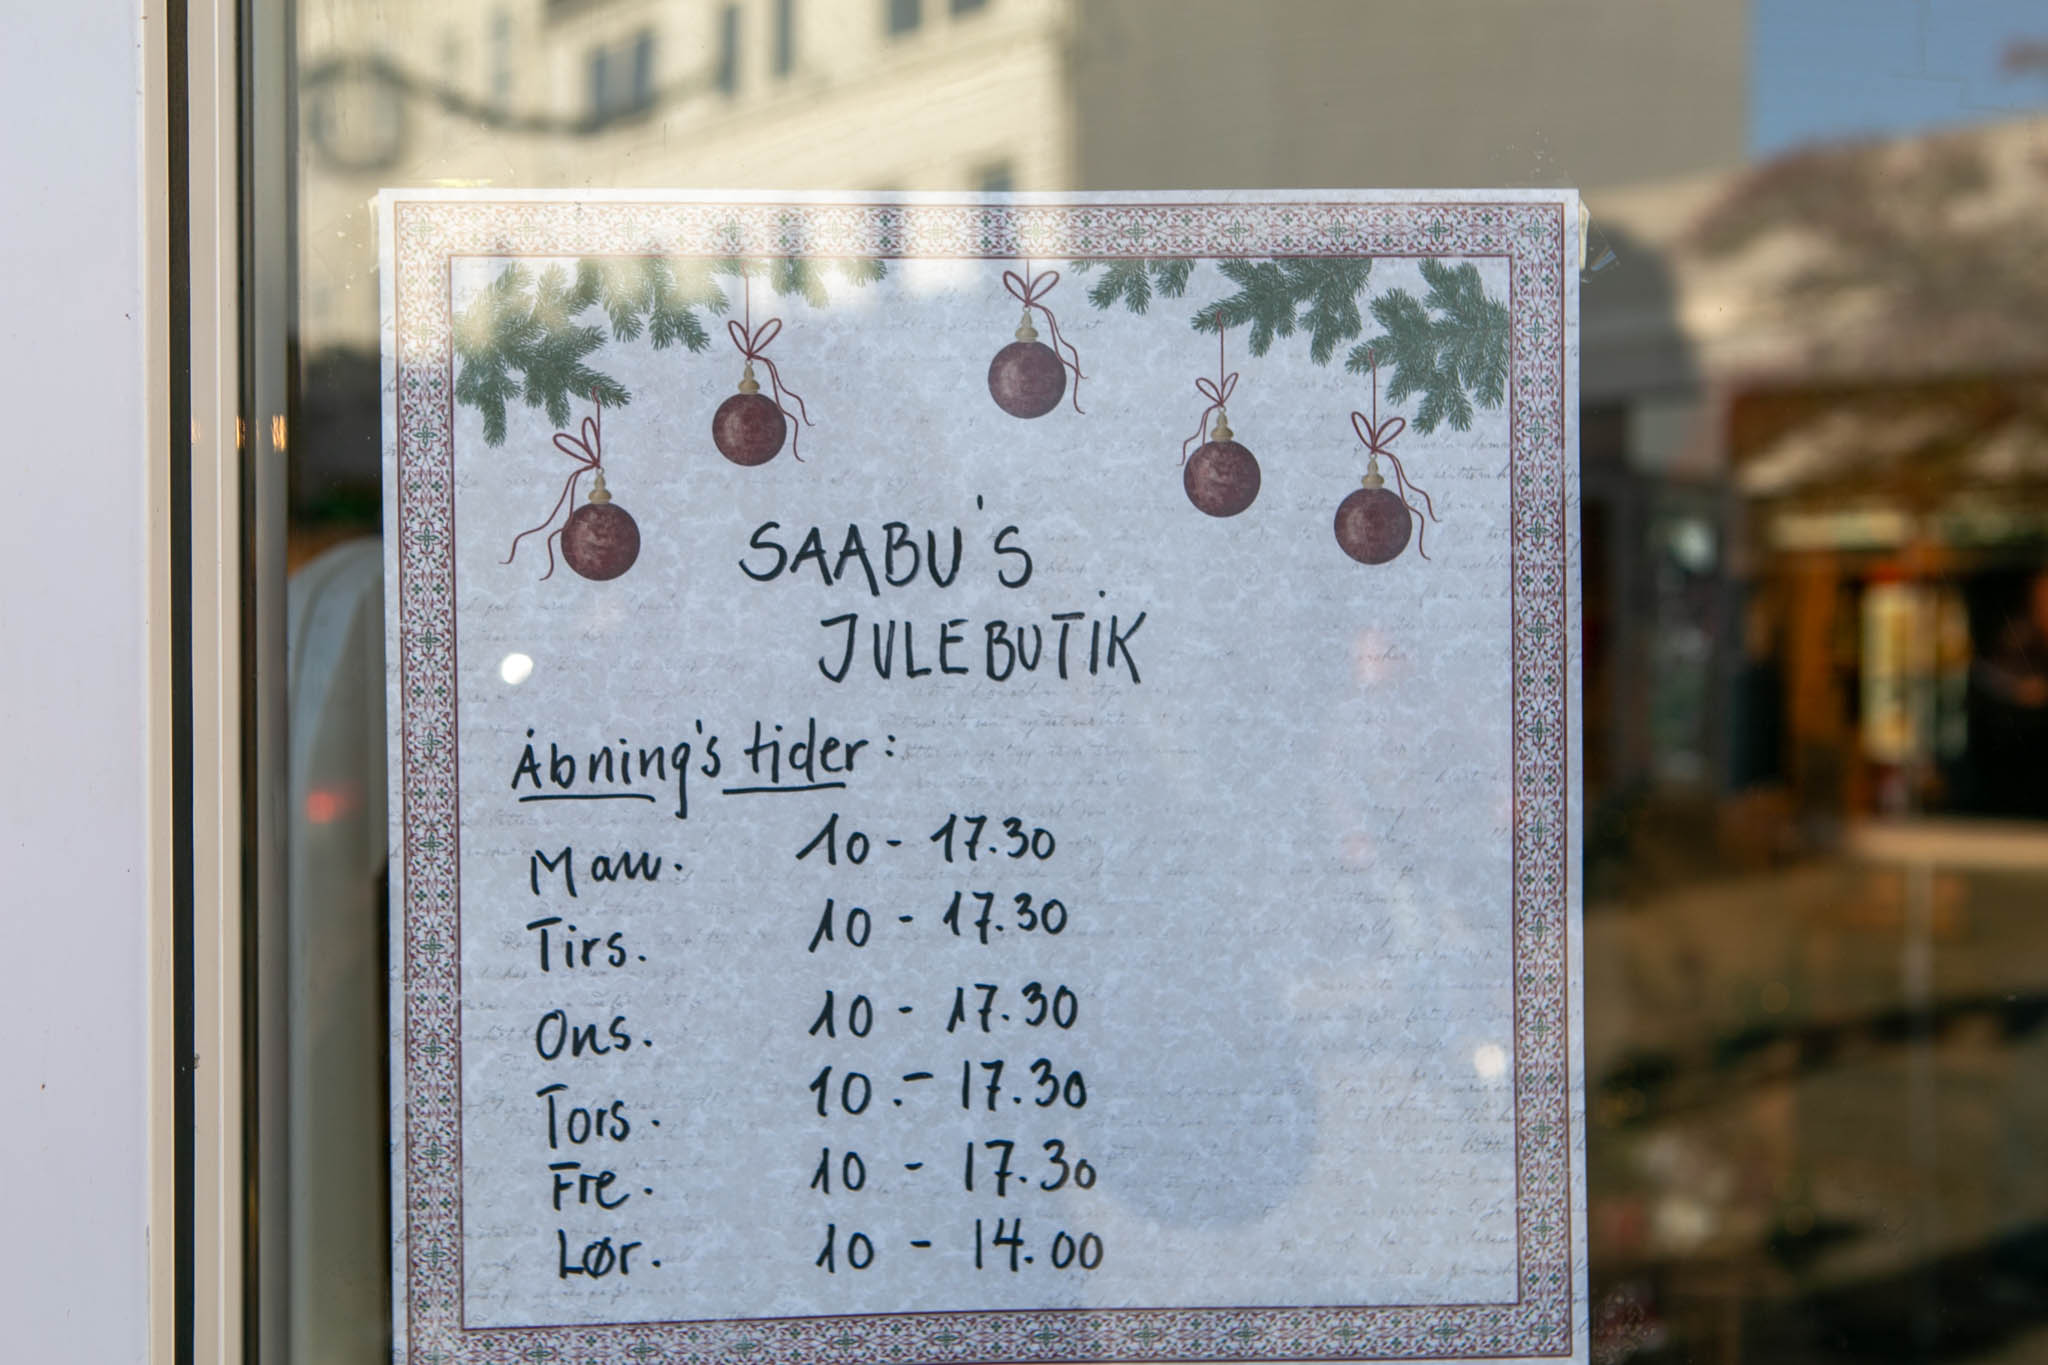 SAABU'S
JULEBUTIK
Åbning's tider:
Man. 10 - 17.30
Tirs. 10 - 17.30
Ons. 10 - 17.30
Tors. 10.- 17.30
Fre. 10 - 17.30
Lør. 10 - 14.00